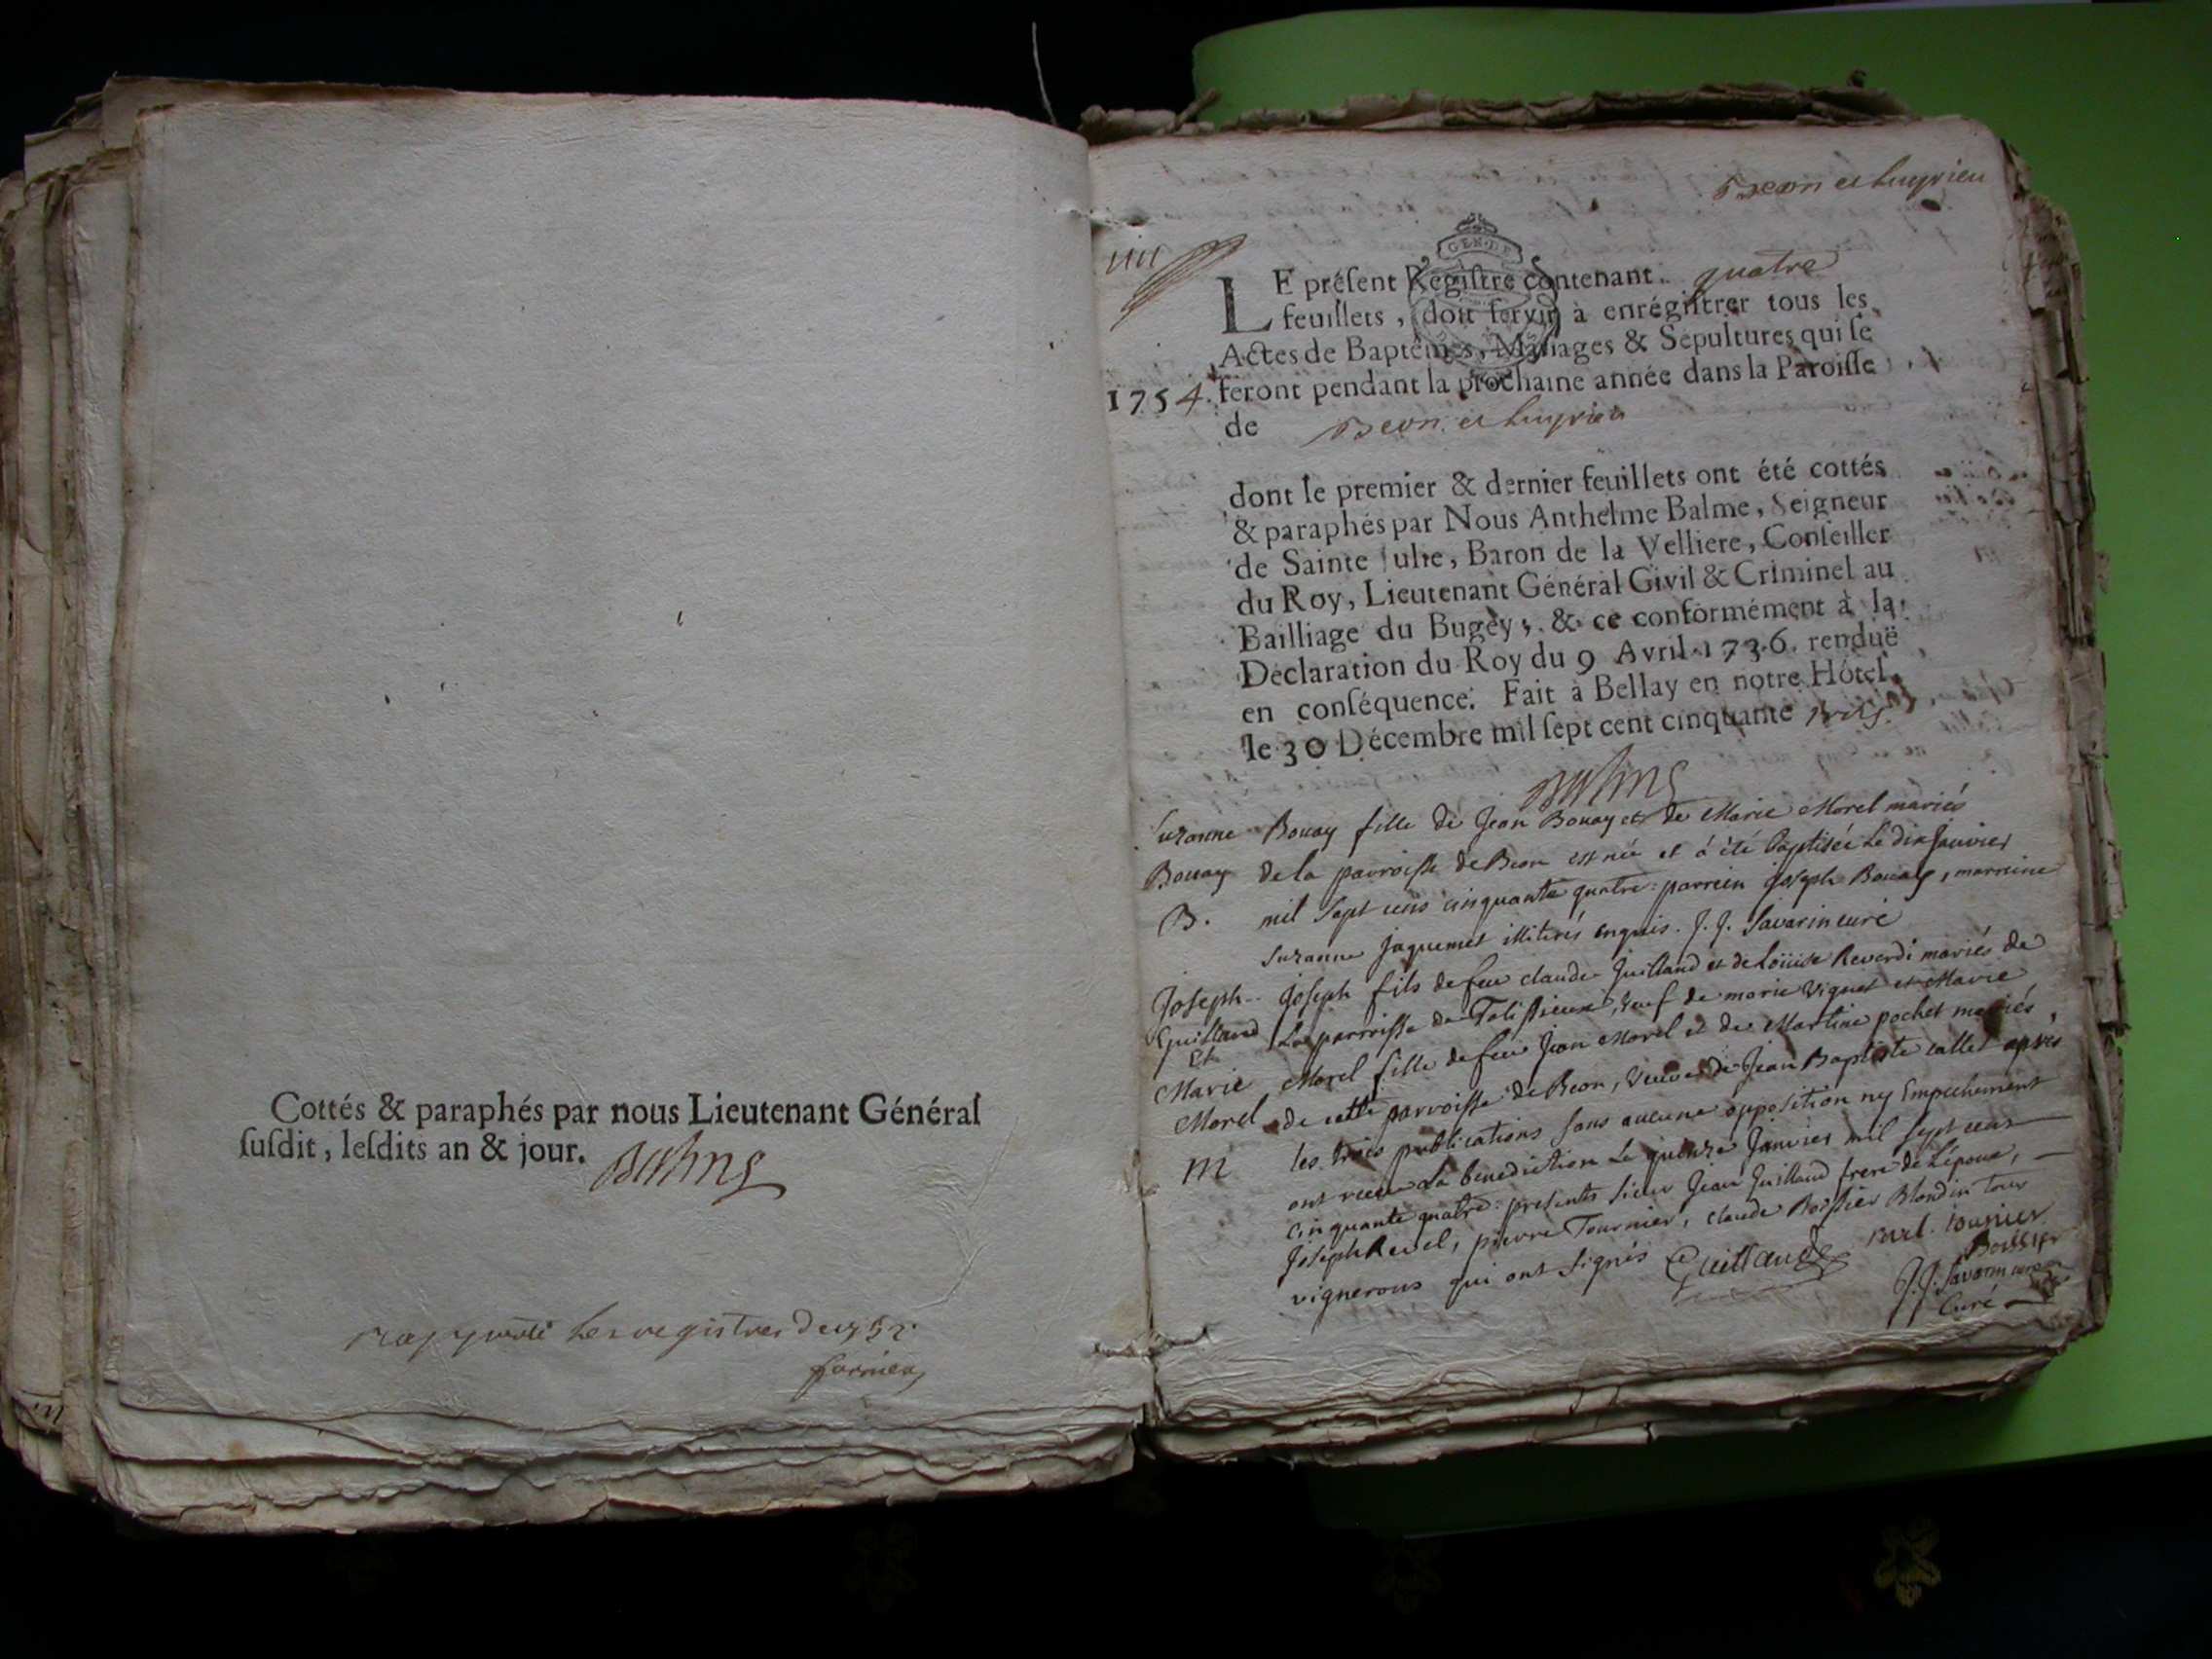 Cottés & paraphés par nous Lieutenant Général
ſuſdit, leſdits an & jour.
Balme
les registres de
Beon et luyrieu
GEN. DE
LE préſent Regiſtre contenant quatre
feuillets, doit ſervir à enrégiſtrer tous les
Actes de Baptêmes, Mariages & Sépultures qui ſe
1754. feront pendant la prochaine année dans la Paroiſſe
de Beon et luyrieu
dont le premier & dernier feuillets ont été cottés
& paraphés par Nous Anthelme Balme, Seigneur
de Sainte Julie, Baron de la Velliere, Conſeiller
du Roy, Lieutenant Général Civil & Criminel au
Bailliage du Bugey, & ce conformément à la
Déclaration du Roy du 9 Avril 1736. renduë
en conſéquence. Fait à Bellay en notre Hôtel
le 30 Décembre mil ſept cent cinquante trois.
Balme
Suzanne Bouay fille de Jean Bouay et de Marie Morel mariés
Bouay de la parroisse de Beon est née et á été baptisée Le dix Janvier
B. mil sept cens cinquante quatre: parrein Joseph Bouay, marreine
Suzanne Jaquemet illiterés enquis. J. J. Savarin curé
Joseph Joseph fils de feu claude Guilland et de Loüise Reverdi mariés de
Guilland La parroisse de Talissieux, veuf de marie Viguet et Marie
Et
Marie Morel fille de feu Jean Morel et de Martine pochet mariés,
Morel de cette parroisse de Beon, Veuve de Jean Baptiste callet après
M les trois publications sans aucune opposition ny Empechement
ont receu La benediction Le quinze Janvier mil sept cens
cinquante quatre: presents sieur Jean Guilland frere de L'époux,
Joseph Revel, pierre Tournier, claude Boissier Blondin tous
vignerons qui ont signés Guilland revel. tournier
Boissier
J. J. Savarin
Curé